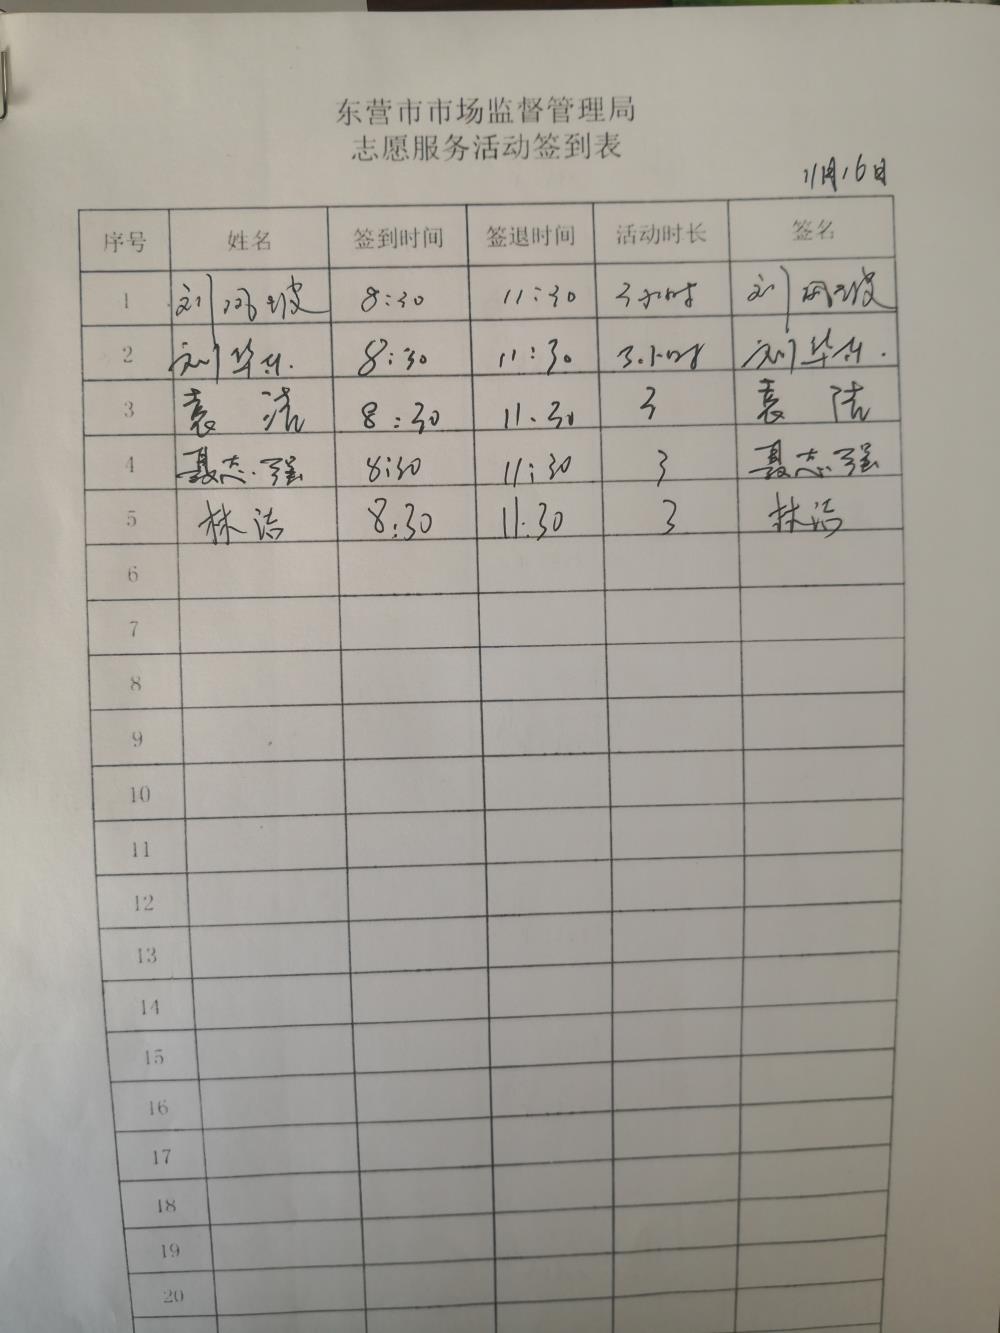 东营市市场监督管理局
志愿服务活动签到表
11月16日
序号 姓名 签到时间 签退时间 活动时长 签名
1 刘风波 8:30 11:30 3小时 刘风波
2 刘华 8:30 11:30 3小时 刘华
3 袁洁 8:30 11:30 3 袁洁
4 聂志强 8:30 11:30 3 聂志强
5 林洁 8:30 11:30 3 林洁
6
7
8
9
10
11
12
13
14
15
16
17
18
19
20